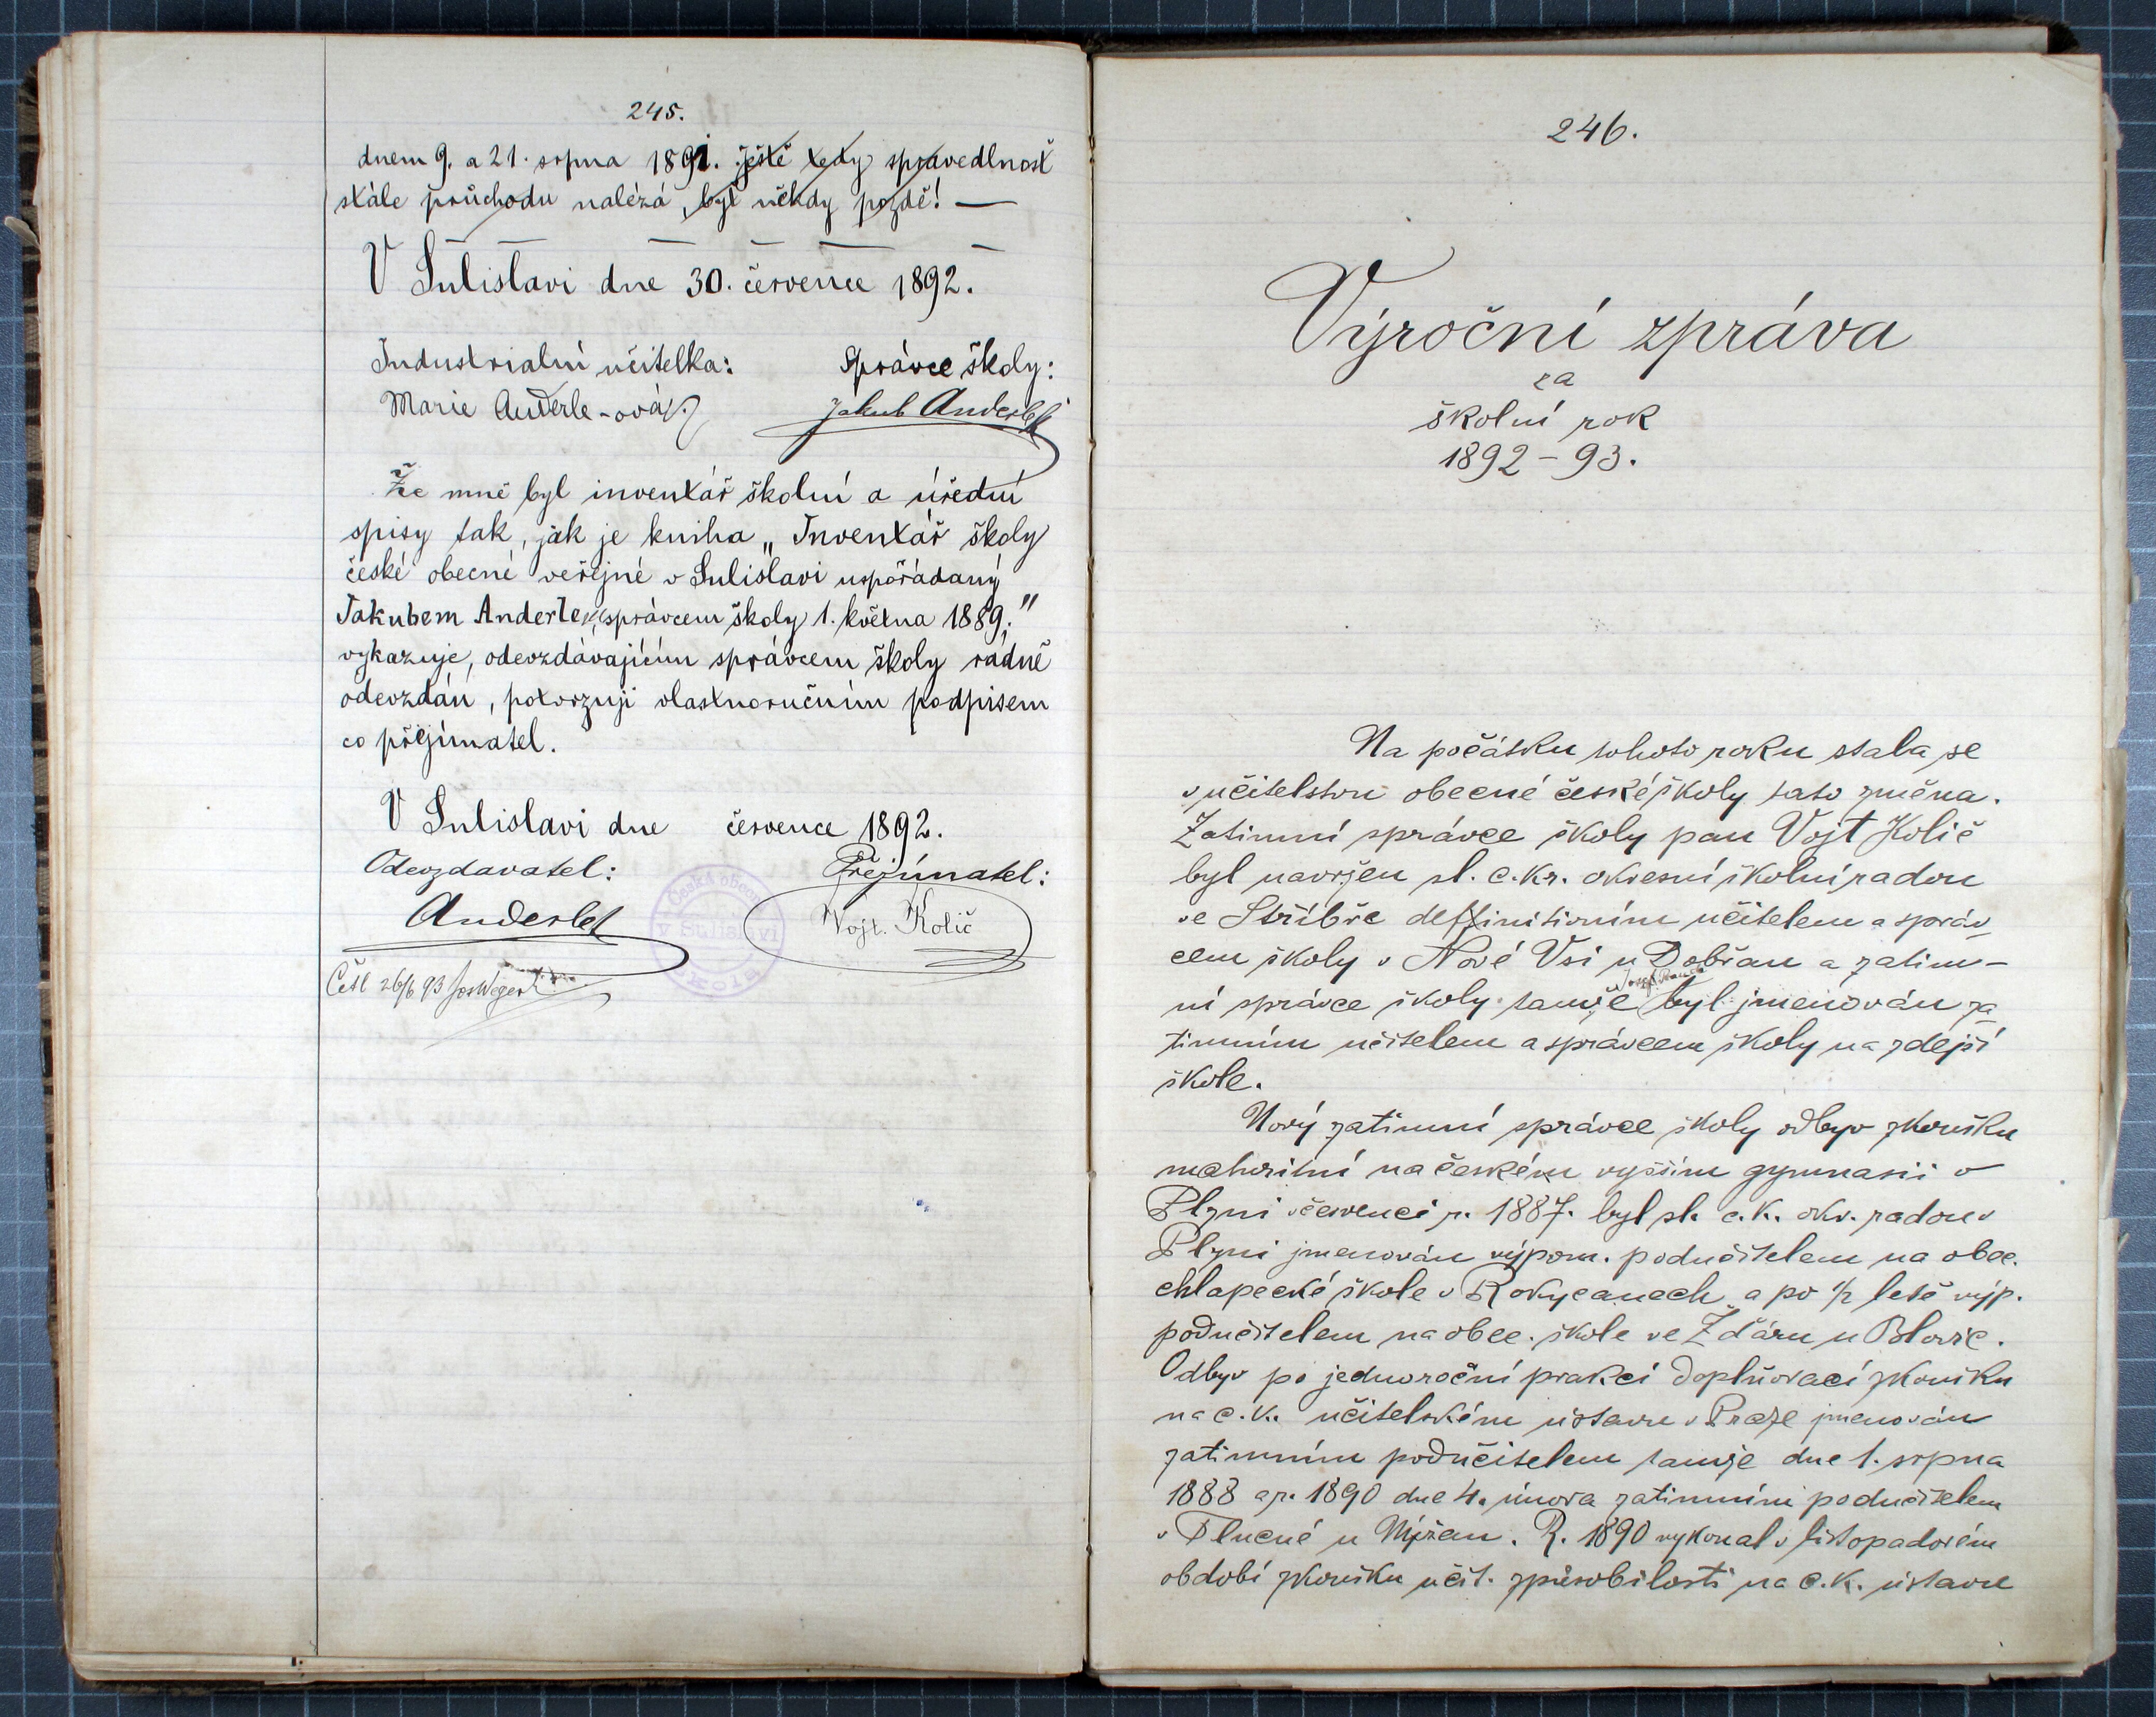 245.
dnem 9. a 21. srpna 1891. Ještě tedy spravedlnost
stále průchodu nalézá, byť někdy pozdě! —
V Sulislavi dne 30. července 1892.
Industrialní učitelka: Správce školy:
Marie Anderle-ová Jakub Anderle
Že mně byl inventář školní a úřední
spisy tak, jak je kniha „Inventář školy
české obecné veřejné v Sulislavi uspořádaný
Jakubem Anderlem, správcem školy 1. května 1889."
vykazuje, odevzdávajícím správcem školy řádně
odevzdán, potvrzuji vlastnoručním podpisem
co přejímatel.
V Sulislavi dne července 1892.
Odevzdavatel: Přejímatel:
Anderle Vojt. Količ
Česká obecná
v Sulislavi
Četl 26/6 93
246.
Výroční zpráva
za
školní rok
1892-93.
Na počátku tohoto roku stala se
v učitelstvu obecné české školy tato změna.
Zatimní správce školy pan Vojt Količ
byl navržen sl. c. kr. okresní školní radou
ve Stříbře deffinitivním učitelem a správ-
cem školy v Nové Vsi u Dobřan a zatim-
ní správce školy tamže Josef byl jmenován za-
timním učitelem a správcem školy na zdejší
škole.
Nový zatimní správce školy odbyv zkoušku
maturitní na českém vyšším gymnasii v
Plzni v červenci r. 1887. byl sl. c. k. okr. radou v
Plzni jmenován výpom. podučitelem na obec.
chlapecké škole v Rokycanech a po 1/2 letě výp.
podučitelem na obec. škole ve Žďáru u Blovic.
Odbyv po jednoroční praksi doplňovací zkoušku
na c. k. učitelském ústavu v Praze jmenován
zatimním podučitelem tamže dne 1. srpna
1888 a r. 1890 dne 4. února zatimním podučitelem
v Tlucné u Nýřan. R. 1890 vykonal v listopadovém
období zkoušku učit. způsobilosti na c. k. ústavu